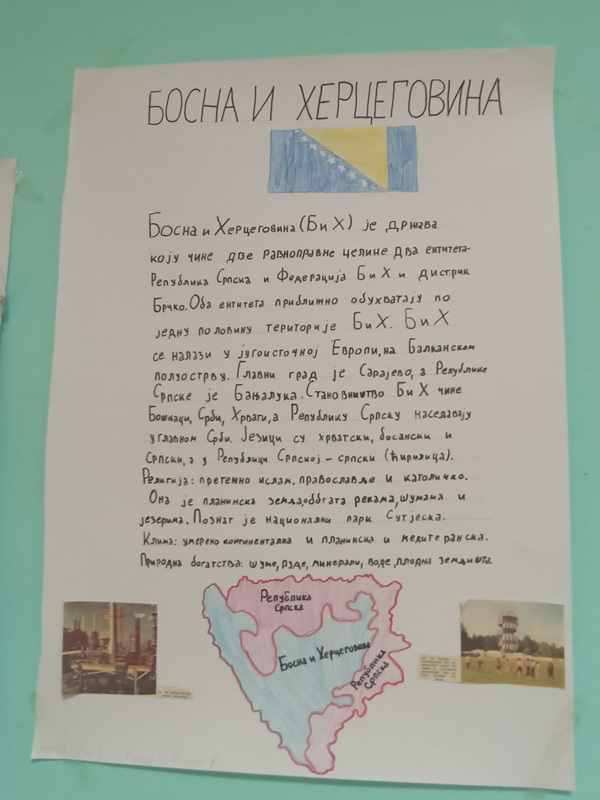 БОСНА И ХЕРЦЕГОВИНА
Босна и Херцеговина (БиХ) је држава
коју чине две равноправне целине два ентитета-
Република Српска и Федерација БиХ и дистрик
Брчко. Оба ентитета приближно обухватају по
једну половину територије БиХ. БиХ
се налази у југоисточној Европи, на Балканском
полуострву. Главни град је Сарајево, а Републике
Српске је Бањалука. Становништво БиХ чине
Бошњаци, Срби, Хрвати, а Републику Српску насељавају
углавном Срби. Језици су хрватски, босански и
српски, а у Републици Српској - српски (ћирилица).
Религија: претежно ислам, православље и католичко.
Она је планинска земља, обогата рекама, шумама и
језерима. Познат је национални парк Сутјеска.
Клима: умерено континентална и планинска и медитеранска.
Природна богатства: шуме, руде, минерали, воде, плодна земљишта
Република
Српска
Босна и Херцеговина
Република
Српска